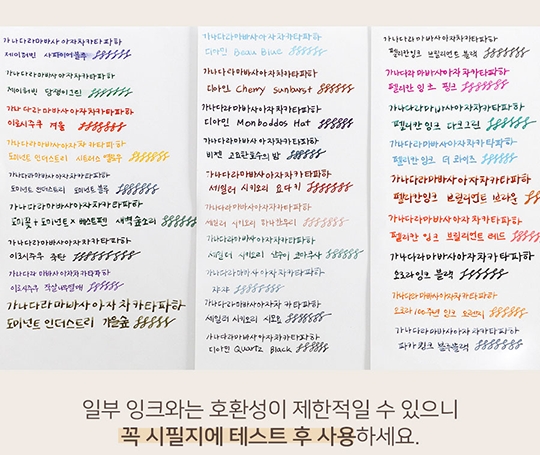 가나다라마바사아자차카타파하
제이허빈 사파이어블루
가나다라마바사아자차카타파하
제이허빈
가나다라마바사아자차카타파하
이로시주쿠 겨울
가나다라마바사아자차카타파하
도미넌트 인더스트리
가나다라마바사아자차카타파하
도미넌트 인더스트리 도미넌트 블루
가나다라마바사아자차카타파하
도미넌트 × 베스트펜 새벽숲소리
가나다라마바사아자차카타파하
이로시주쿠 죽탄
가나다라마바사아자차카타파하
이로시주쿠
가나다라마바사아자차카타파하
도미넌트 인더스트리 가을숲
가나다라마바사아자차카타파하
디아민 Beau Blue
가나다라마바사아자차카타파하
디아민 Cherry Sunburst
가나다라마바사아자차카타파하
디아민 Monboddos Hat
가나다라마바사아자차카타파하
비젠 고요한호수의밤
가나다라마바사아자차카타파하
세일러 시키오리 요다키
가나다라마바사아자차카타파하
세일러 시키오리
가나다라마바사아자차카타파하
세일러 시키오리
가나다라마바사아자차카타파하
가나다라마바사아자차카타파하
세일러 시키오리
가나다라마바사아자차카타파하
디아민 Quartz Black
가나다라마바사아자차카타파하
펠리칸잉크 브릴리언트 블랙
가나다라마바사아자차카타파하
펠리칸 잉크 핑크
가나다라마바사아자차카타파하
펠리칸 잉크 다크그린
가나다라마바사아자차카타파하
펠리칸 잉크 터쿼이즈
가나다라마바사아자차카타파하
펠리칸잉크 브릴리언트 브라운
가나다라마바사아자차카타파하
펠리칸 잉크 브릴리언트 레드
가나다라마바사아자차카타파하
오로라잉크 블랙
가나다라마바사아자차카타파하
오로라 100주년 잉크 오렌지
가나다라마바사아자차카타파하
파카 큉크 블루블랙
일부 잉크와는 호환성이 제한적일 수 있으니
꼭 시필지에 테스트 후 사용하세요.